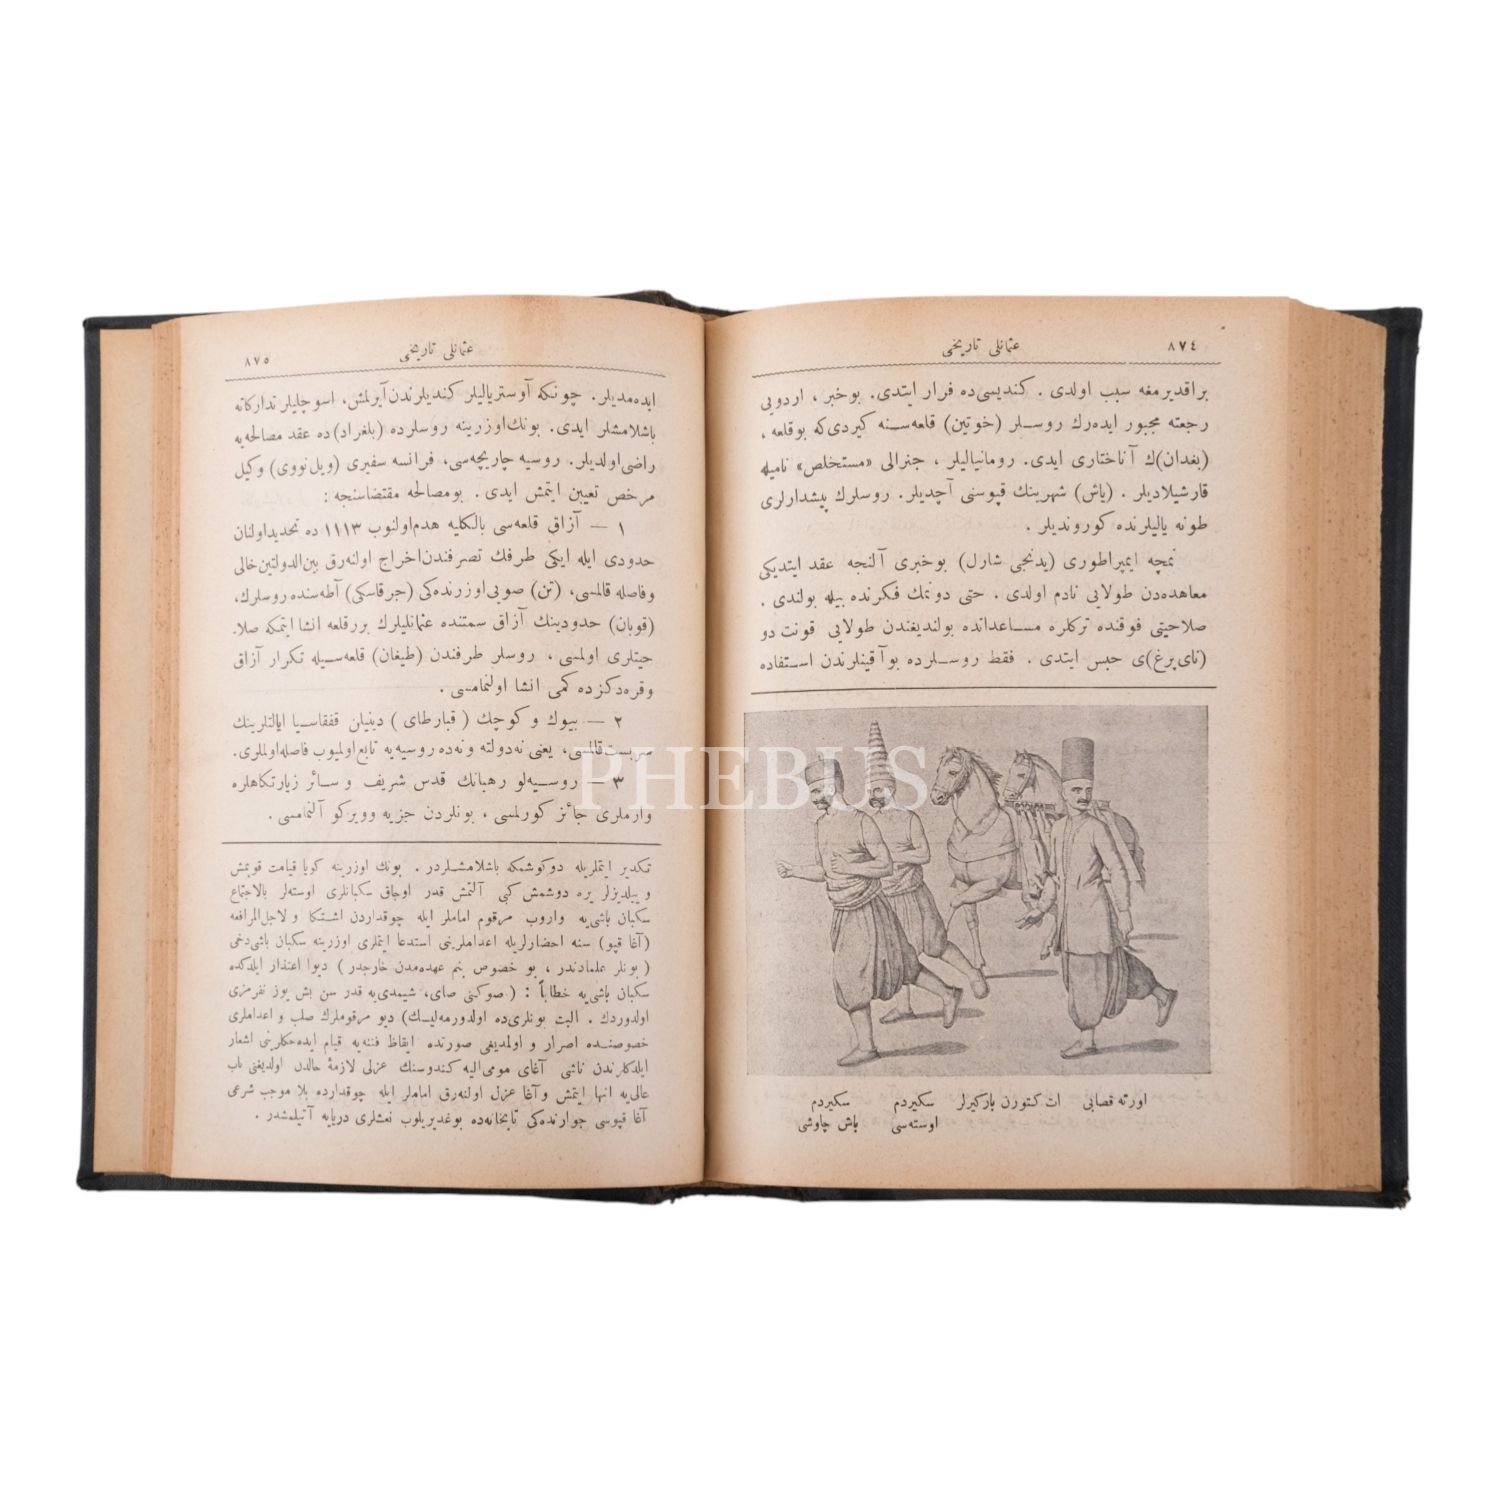 ٨٧٤ عثمانلی تاریخی
براقدیرمغه سبب اولدی . كندیسی‌ده فرار ایتدی. بوخبر ، اردویی
رجعته مجبور ایده‌رك روسلر (خوتین) قلعه‌سنه كیردی‌كه بوقلعه ،
(بغدان)ك آناختاری ایدی. رومانیالیلر ، جنرالی «مستخلص» نامیله
قارشیلادیلر . (یاش) شهرینك قپوسنی آچدیلر. روسلرك پیشدارلری
طونه یالیلرنده كوروندیلر .
نمچه ایمپراطوری (یدنجی شارل) بوخبری آلنجه عقد ایتدیكی
معاهده‌دن طولایی نادم اولدی . حتی دونمك فكرنده بیله بولندی .
صلاحیتی فوقنده تركلره مساعدانده بولندیغندن طولایی قونت دو
(نای پرغ)ی حبس ایتدی . فقط روسلرده بوآقینلرندن استفاده
اورته قصابی ات كتورن باركیرلر سكیردم سكیردم
اوسته‌سی باش چاوشی
عثمانلی تاریخی ٨٧٥
ایده‌مدیلر. چونكه آوستریالیلر كندیلرندن آیرلمش، اسوچلیلر تداركاته
باشلامشلر ایدی. بونك‌اوزرینه روسلرده (بلغراد)ده عقد مصالحه‌یه
راضی‌اولدیلر. روسیه چاریچه‌سی، فرانسه سفیری (ویل‌نووی) وكیل
مرخص تعیین ایتمش ایدی. بومصالحه مقتضاسنجه :
١ — آزاق قلعه‌سی بالكلیه هدم‌اولنوب ١١١٣ ده تحدیداولنان
حدودی ایله ایكی طرفك تصرفندن‌اخراج اولنه‌رق بین‌الدولتین‌خالی
وفاصله قالمسی، (تن) صویی‌اوزرنده‌كی (چرقاسكی) آطه‌سنده روسلرك،
(قوبان) حدودینك آزاق سمتنده عثمانلیلرك بررقلعه انشا ایتمكه صلا.
حیتلری اولمسی ، روسلر طرفندن (طیغان) قلعه‌سیله تكرار آزاق
وقره‌دكزده كمی انشا اولنمامسی .
٢ — بیوك وكوچك (قبارطای) دینیلن قفقاسیا ایالتلرینك
سربست‌قالمسی، یعنی نه‌دولته ونه‌ده روسیه‌یه تابع‌اولمیوب فاصله‌اولملری.
٣ — روسیه‌لو رهبانك قدس شریف و سائر زیارتكاهلره
وارملری جائز كورلمسی ، بونلردن جزیه وویركو آلنمامسی .
تكدیر ایتملریله دوكوشمكه باشلامشلردر . بونك اوزرینه كویا قیامت قوپمش
و ییلدیزلر یره دوشمش كبی آلتمش قدر اوجاق سكبانلری اوسته‌لر بالاجتماع
سكبان باشی‌یه واروب مرقوم اماملر ایله چوقداردن اشتكا و لاجل‌المرافعه
(آغا قپو) سنه احضارلریله اعداملرینی استدعا ایتملری اوزرینه سكبان باشی‌دخی
(بونلر علمادندر ، بو خصوص بنم عهده‌مدن خارجدر) دیوا اعتذار ایلدكده
سكبان باشی‌یه خطاباً : (صوكنی صای، شیمدی‌یه قدر سن بش یوز نفرمزی
اولدوردك . البت بونلری‌ده اولدورمه‌لیسك) دیو مرقوملرك صلب و اعداملری
خصوصنده اصرار و اولمدیغی صورتده ایقاظ فتنه‌یه قیام ایده‌جكلرینی اشعار
ایلدكلرندن ناشی آغای مومی‌الیه كندوسنك عزلی لازمۀ حالدن اولدیغنی باب
عالی‌یه انها ایتمش وآغا عزل اولنه‌رق اماملر ایله چوقدارده بلا موجب شرعی
آغا قپوسی جوارنده‌كی تابخانه‌ده بوغدیریلوب نعشلری دریایه آتیلمشدر .
PHEBUS